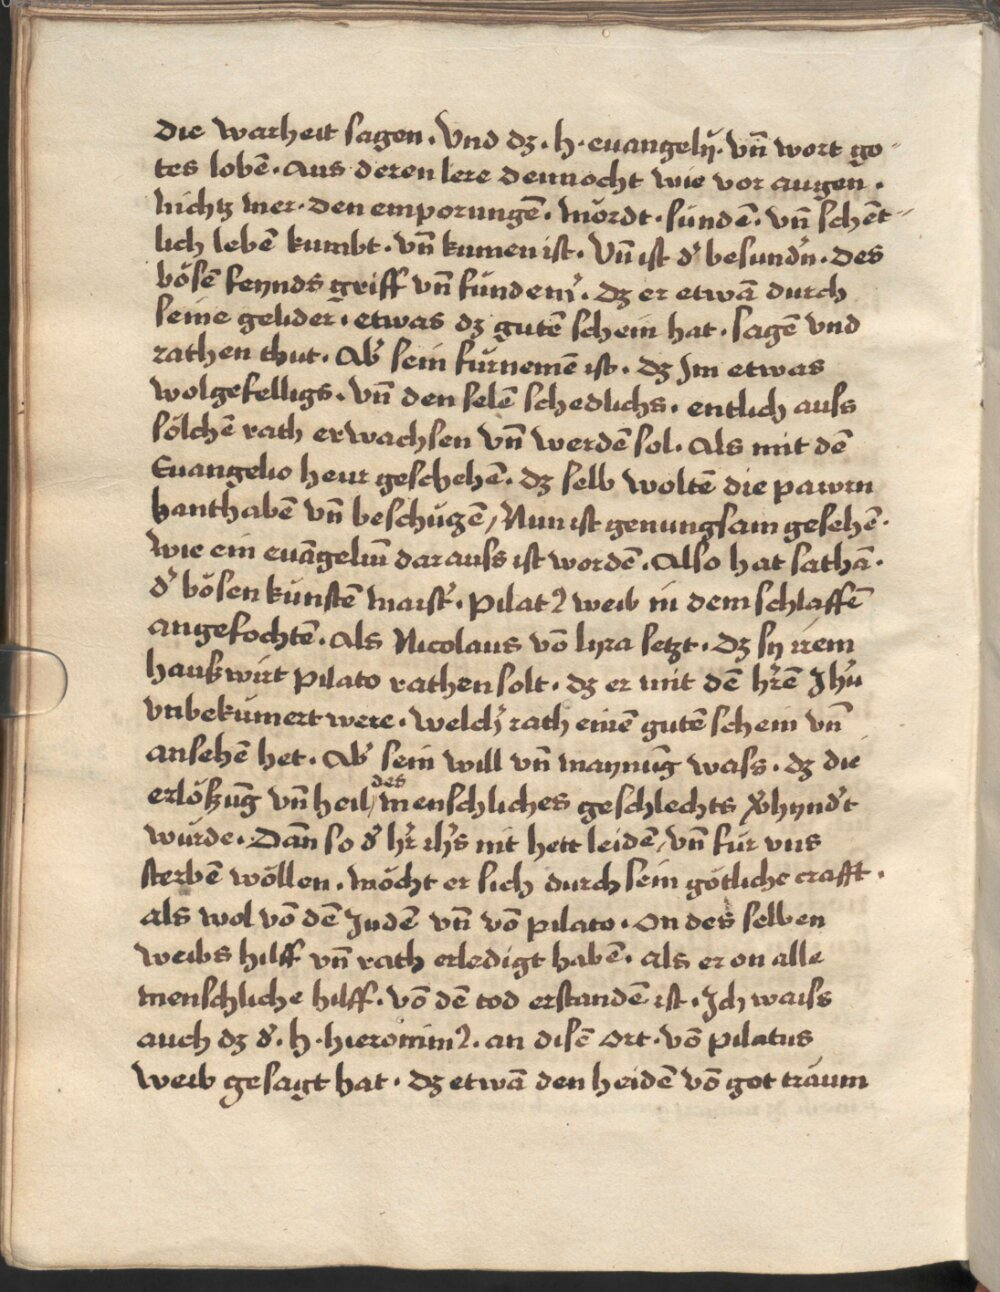 die warheit sagen. Vnd dz. h. euangelij. vn̄ wort go-
tes lobē. Aus deren lere dennocht wie vor augen.
nichtz mer. den emporungē. mördt. sündē. vn̄ schēt-
lich lebē kumbt. vn̄ kumen ist. Vn̄ ist d' besund'n. des
bösē feynds griff vn̄ fündem̄. dz er etwā durch
seine gelider. etwas dz gutē schein hat. sagē vnd
rathen thut. Ab' sein fürnemē ist. dz Im etwas
wolgefelligs. vn̄ den selē schedlichs. entlich auss
sölchē rath erwachsen vn̄ werdē sol. Als mit dē
Euangelio heur geschehē. dz selb woltē die pawrn
hanthabē vn̄ beschützē, Nun ist genungsam gesehē.
wie ein euāgeliū darauss ist wordē. Also hat sathā.
d' bösen künstē maist'. Pilat9 weib in dem schlaffē
angefochtē. als Nicolaus vō lyra setzt. dz sy irem
haußwirt pilato rathen solt. dz er mit dē h'rē Jh'u
vnbekümert were. welch' rath einē gutē schein vn̄
ansehē het. Ab' sein will vn̄ maynūg wass. dz die
erlößūg vn̄ heil, des menschliches geschlechts v'hynd't
würde. Dān so d' h'r ih's nit hett leidē, vn̄ für vns
sterbē wöllen. möcht er sich durch sein götliche crafft.
als wol vō dē Judē vn̄ vō pilato. on des selben
weibs hilff vn̄ rath erledigt habē. als er on alle
menschliche hilff. vō dē tod erstandē ist. Ich waiss
auch dz d'. h. hieronim9. an disē ort. vō pilatus
weib gesagt hat. dz etwā den heidē vō got träum